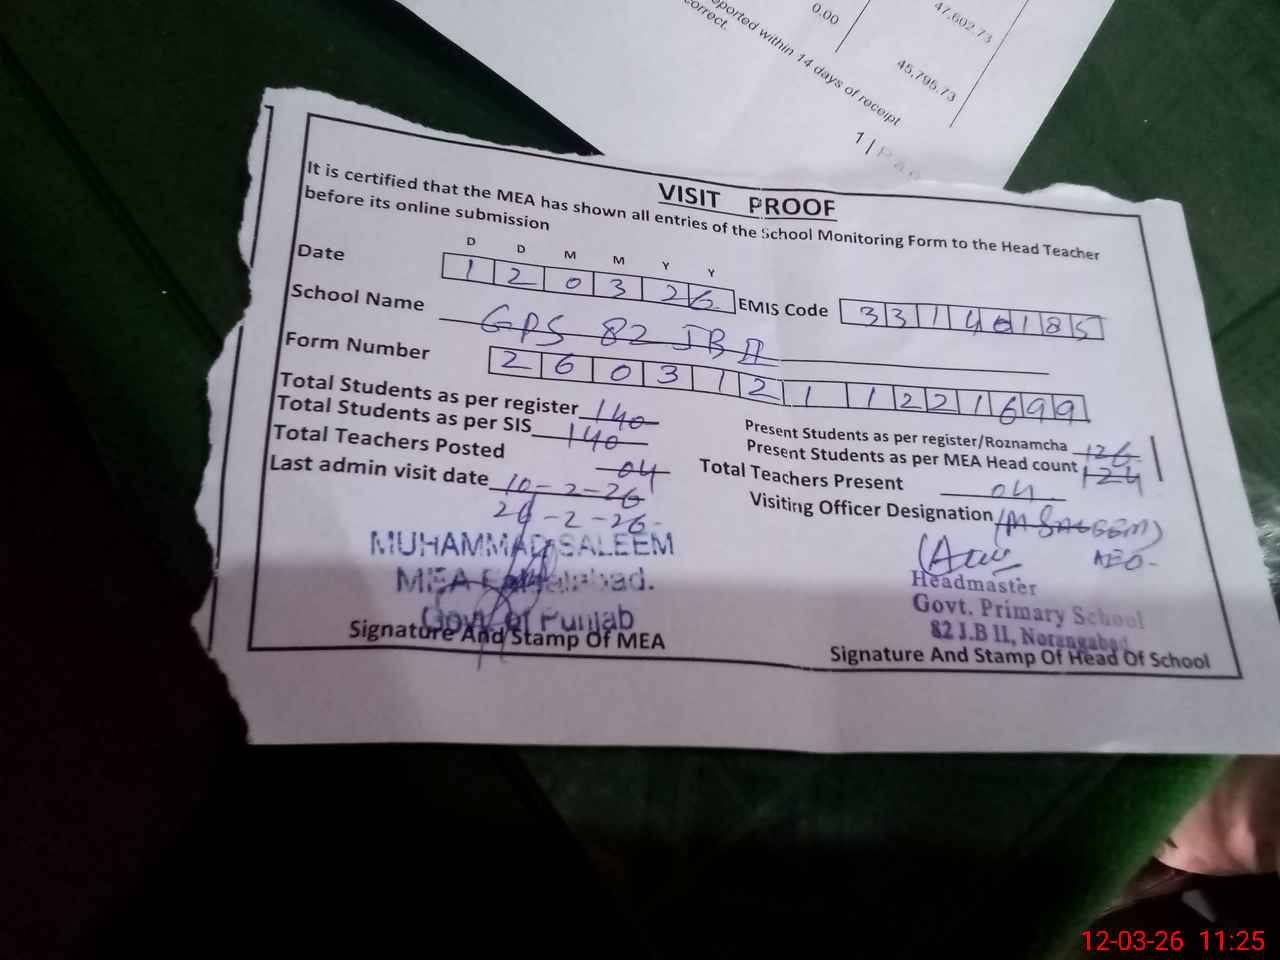 0.00
47,602.73
45,795.73
ported within 14 days of receipt
correct.
1 | P a g
VISIT PROOF
It is certified that the MEA has shown all entries of the School Monitoring Form to the Head Teacher
before its online submission
D D M M Y Y
Date 1 2 0 3 2 6 EMIS Code 3 3 1 4 0 1 8 5
School Name GPS 82 JB II
Form Number 2 6 0 3 1 2 1 1 2 2 1 6 9 9
Total Students as per register 140 Present Students as per register/Roznamcha 126
Total Students as per SIS 140 Present Students as per MEA Head count 124
Total Teachers Posted 04 Total Teachers Present 04
Last admin visit date 10-2-26 Visiting Officer Designation (M SALEEM)
26-2-26- AEO-
MUHAMMAD SALEEM
MEA Faisalabad.
Govt of Punjab
Signature And Stamp Of MEA
Headmaster
Govt. Primary School
82 J.B II, Norangabad
Signature And Stamp Of Head Of School
12-03-26 11:25